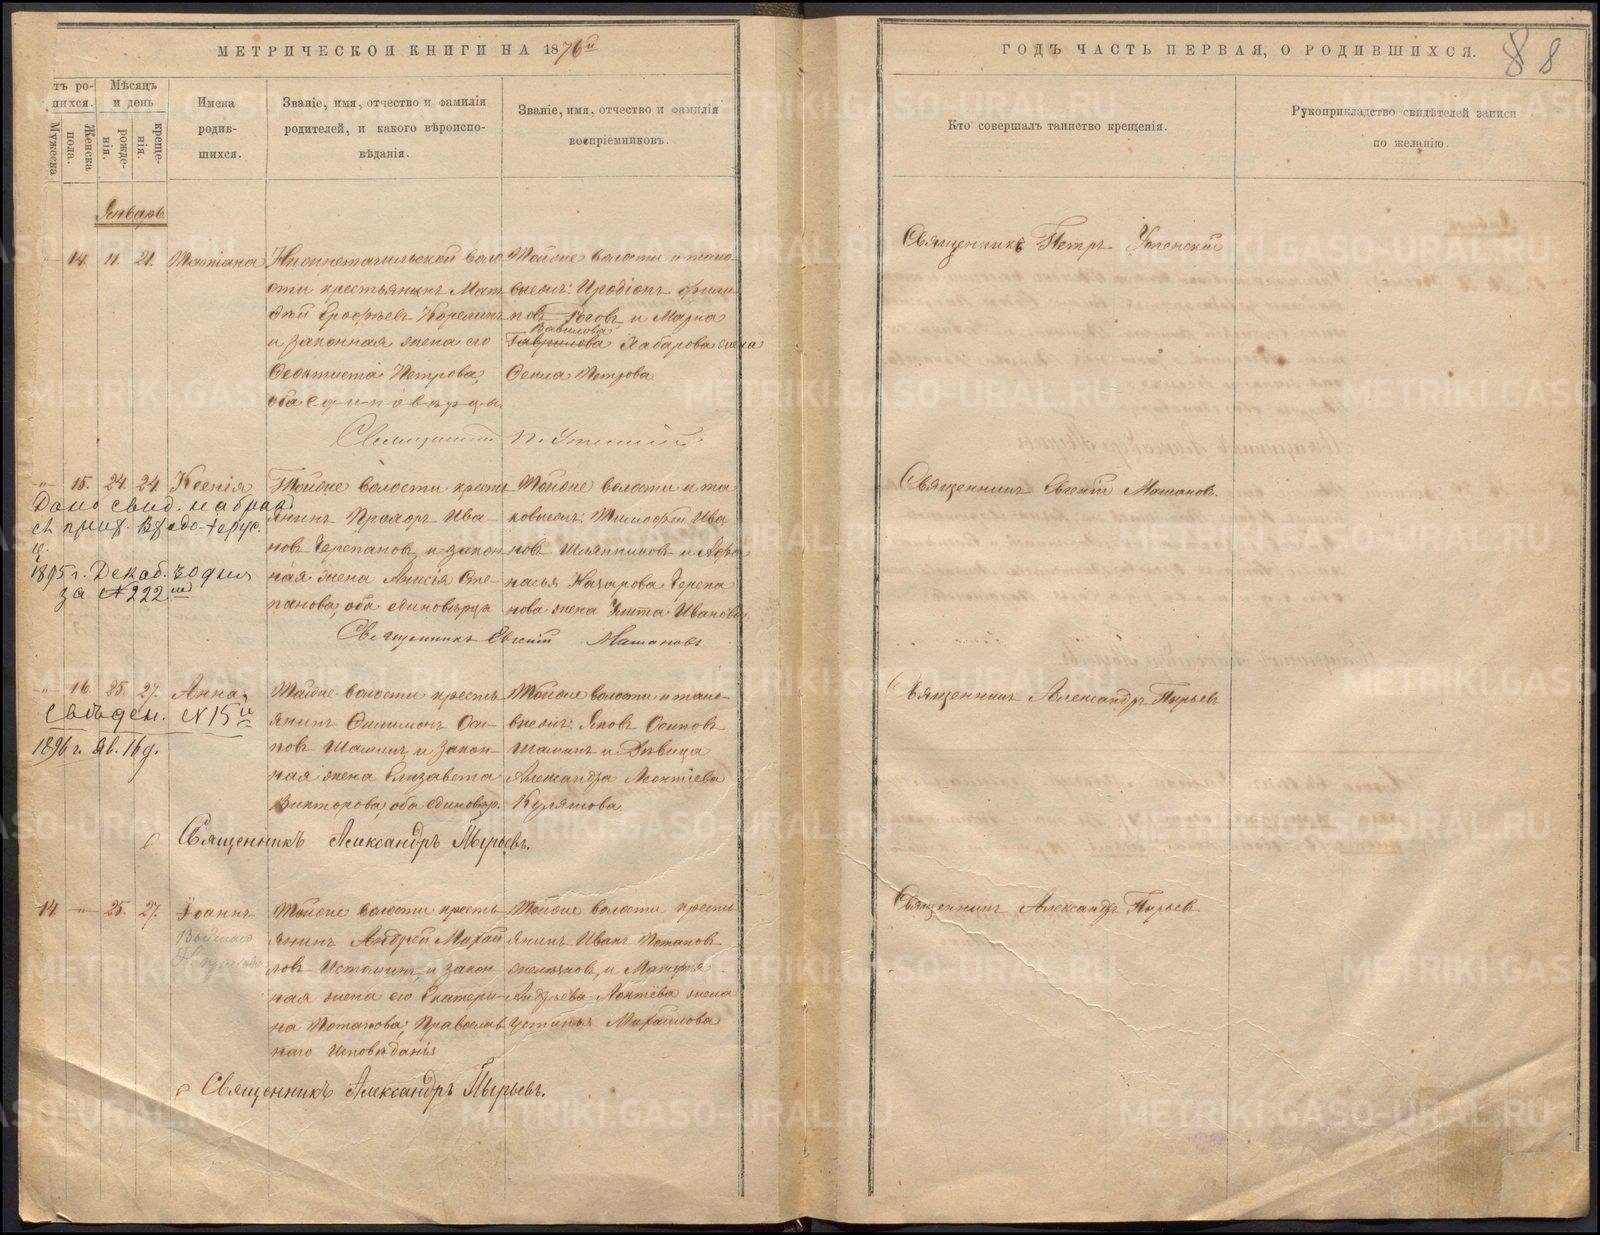 МЕТРИЧЕСКОЙ КНИГИ НА 1876й
ГОДЪ ЧАСТЬ ПЕРВАЯ, О РОДИВШИХСЯ.
88
тъ ро-
шихся.
Мужеска
Женска
пола.
Мѣсяцъ
и день
рожде-
нія.
креще-
нія.
Имена
родив-
шихся.
Званіе, имя, отчество и фамилія
родителей, и какого вѣроиспо-
вѣданія.
Званіе, имя, отчество и фамилія
воспріемниковъ.
Кто совершалъ таинство крещенія.
Рукоприкладство свидѣтелей записи
по желанію.
Январь
14. 21. Татіана
Нижнетагильской воло
сти крестьянинъ Мат
ѳей Ерофѣевъ Корелинъ
и законная жена его
Ѳеоктиста Петрова,
оба единовѣрцы.
Тойже волости и тано
Иродіонъ
Роговъ и Марѳа
Вавилова
Гаврилова Хабарова
Петрова
Священникъ Петръ Успенскій
Священникъ П. Успенскій
15. 24. 24 Ксенія
Тойже волости кресть
янинъ Прохоръ Ива
новъ Черепановъ и закон
ная жена Анисія Сте
панова, оба единовѣрца
Тойже волости и та
Тимофей Ива
новъ Шляпниковъ и Аѳа
насья Назарова Черепа
нова жена Улита Иванова
Священникъ Евгеній Матановъ.
Дано свид. на бракъ
1895 г. Декаб. 30 дня
за №222мъ
Священникъ Евгеній Матановъ
16. 25. 27. Анна,
Тойже волости кресть
янинъ Филимонъ Оси
повъ Шаминъ и закон-
ная жена Елизавета
Викторова, оба единовѣр.
Тойже волости и тано-
Яковъ Осиповъ
Шаминъ и дѣвица
Александра Леонтіева
Кулятова
Священникъ Александръ Пырьевъ
Свѣден. №15й
1896 г. Янв. 16 д.
Священникъ Александръ Пырьевъ.
14 25. 27. Іоаннъ
Тойже волости кресть
янинъ Андрей Михай
ловъ Истоминъ, и закон
ная жена его Екатери-
на Потапова, Православ
наго Исповѣданія
Тойже волости кресть
янинъ Иванъ Потаповъ
и Макарія
Андреева Локтёва жена
Устинья Михаилова
Священникъ Александръ Пырьевъ
Священникъ Александръ Пырьевъ.
METRIKI.GASO-URAL.RU